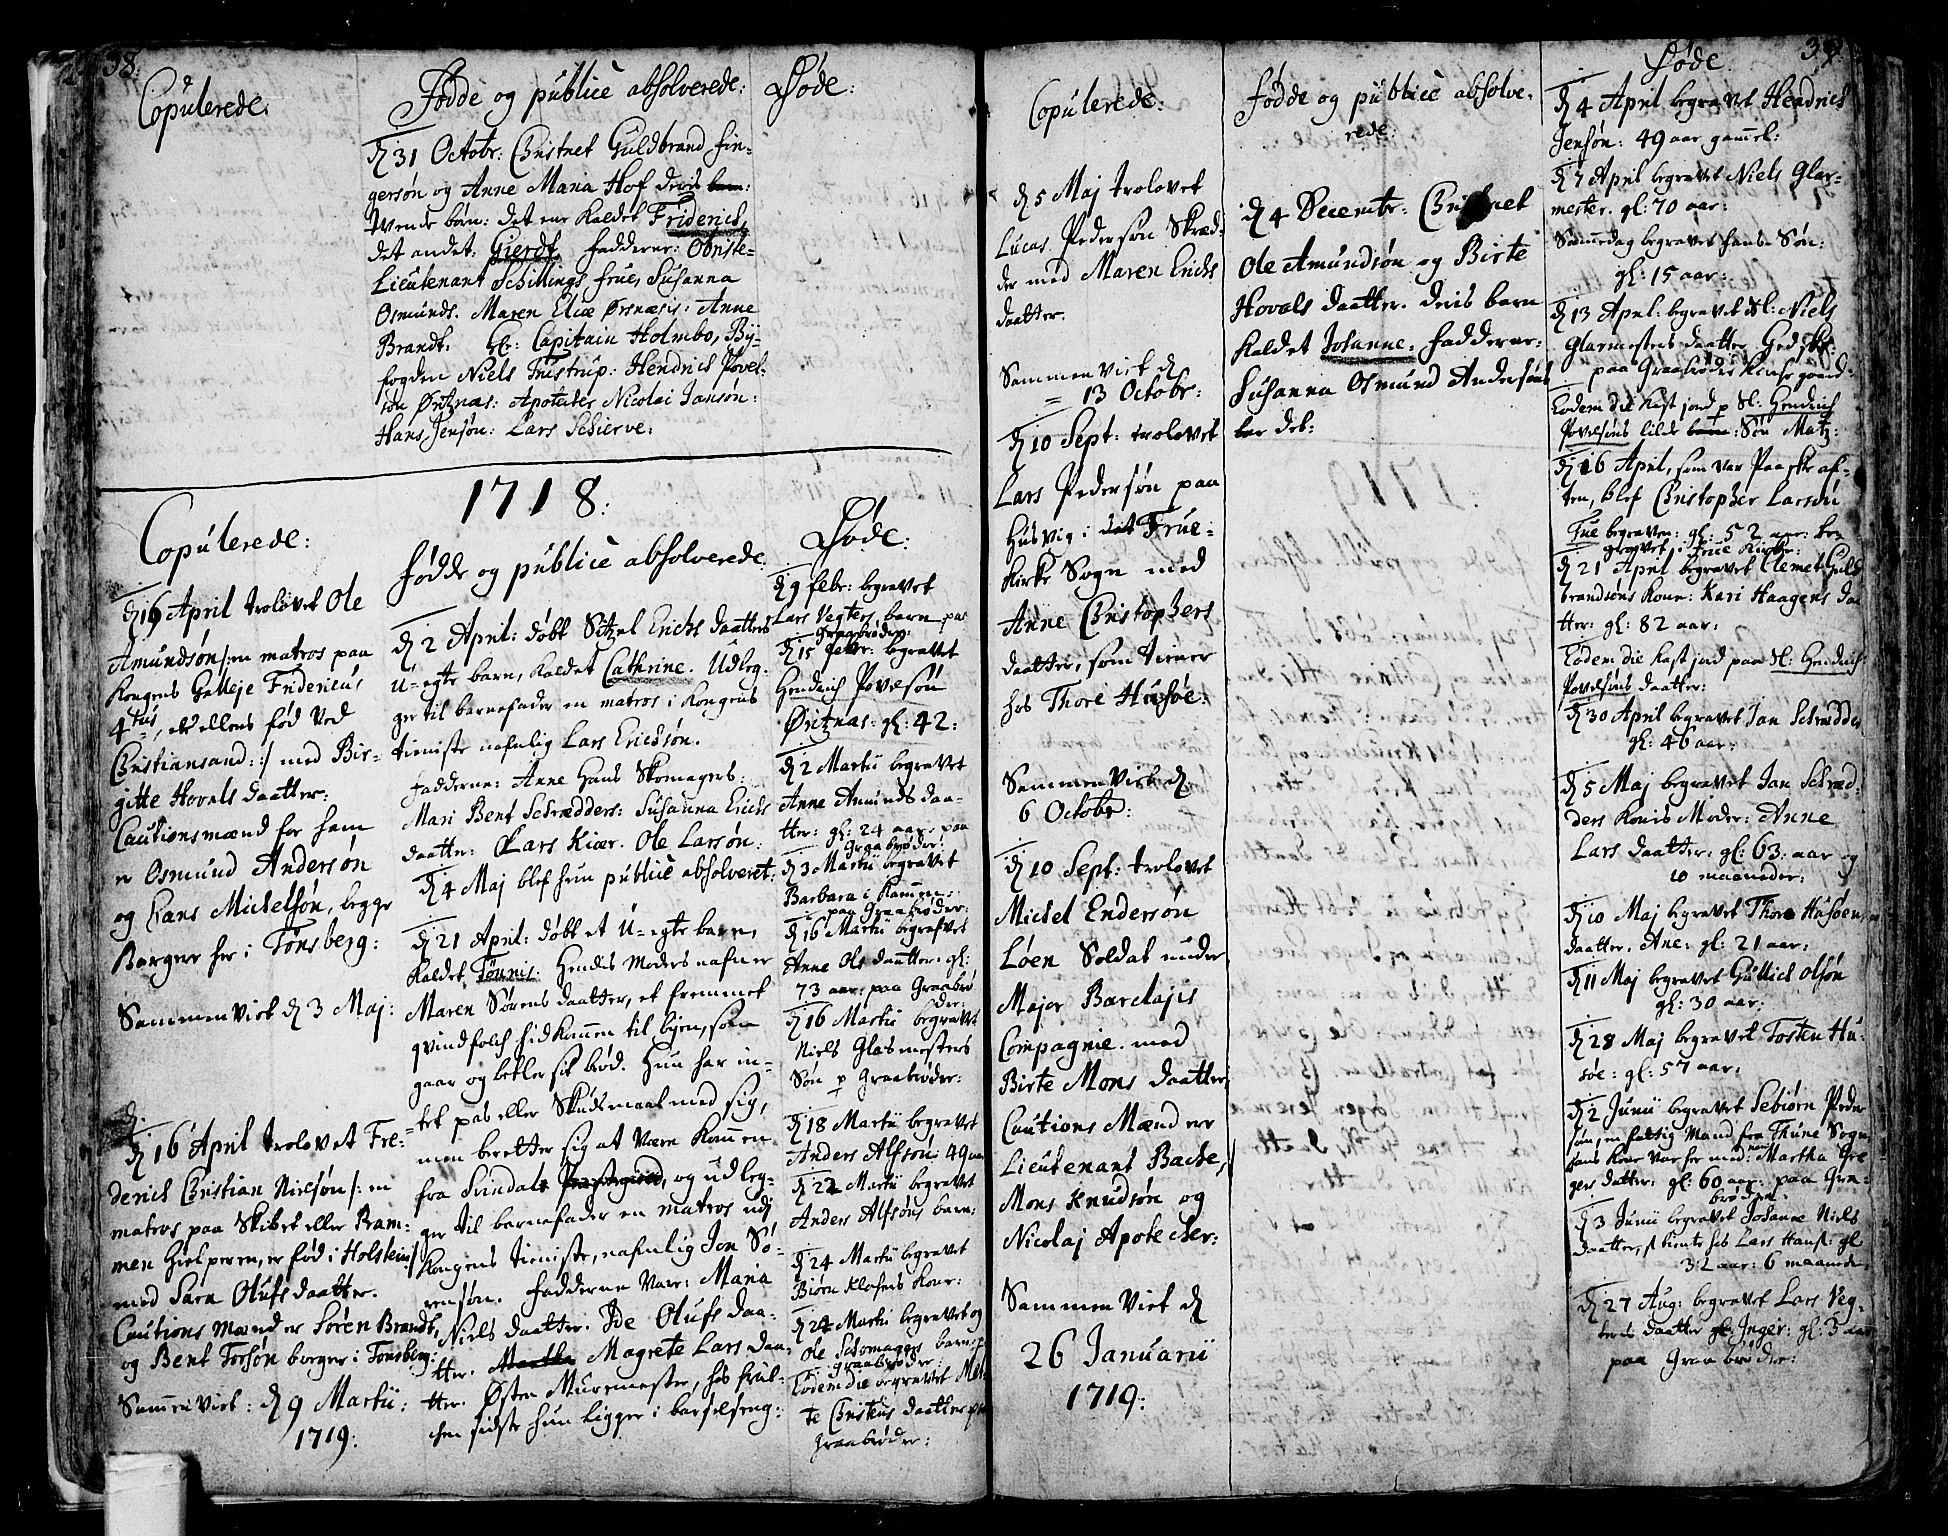 38:
Copulerede:
Fødde og publicè absolverede:
Døde:
d 31 Octobr: Christnet Guldbrand Fin-
gersøn og Anne Maria Hof deris barn:
tvende børn: det ene kaldet Friderich,
det andet: Gierdt. Fadderne: Obriste-
Lieutenant Schillings frue, Susanna
Osmunds. Maren Elisæ Ørsnæsis. Anne
Brandt. Hr: Capitain Holmbo, By-
fogden Niels Trustrup: Hendrich Povel-
søn Øritznas: Apoteker Nicolai Jansøn:
Hans Jensøn: Lars Schierve:
1718:
Copulerede:
d 16 April trolovet Ole
Amundsøn /: en matros paa
Kongens Galleje Fridericus
4tus, ellers fød ved
Christiansand: :/ med Bir-
gitte Hovels daatter:
Cautionsmænd for ham
er Osmund Andersøn
og Hans Michelsøn, begge
Borgere her i Tønsberg:
Sammenviet d 3 Maj:
d 16 April trolovet Fre-
derich Christian Nielsøn /: en
matros paa Skibet eller Pram-
men Hielperen, er fød i Holsteen :/
med Sara Olufs daatter.
Cautions mænd er Søren Brandt,
og Bent Torsøn borger i Tonsberg:
Sammenviet: d 9 Martii:
1719:
Fødde og publicè absolverede.
d 2 April: døbt Sitzel Erichs daatters
U-egte barn, kaldet Cathrine. Udleg-
ger til barnefader en matros i Kongens
tieniste nafnlig Lars Erichsøn.
Fadderne: Anne Hans Skomagers:
Mari Bent Schrædders: Susanna Erichs
daatter: Lars Kiær. Ole Larsøn:
d 4 Maj blef hun publicè absolveret:
d 21 April: døbt et U-egte barn,
kaldet Tønnis: Hendis Moders nafn er
Maren Sørens daatter, et fremmet
qvindfolch hidkommen til byen, som
gaar og betler sit brød. Hun har in-
tet pas eller Skudsmaal med sig,
men beretter sig at være kommen
fra Svindals Præstegield, og udleg-
ger til barnefader en matros udj
Kongens tieniste, nafnlig Jon Sø-
rensøn. Fadderne vare: Maria
Niels daatter. Ide Olufs daa-
tter. Martha Magrete Lars daa-
tter. Østen Muremester, hos hvil-
chen sidste hun ligger i barselseng:
Døde:
d 9 Febr: begravet
Lars Vegters barn paa
Graabrøder:
d 15 Febr: begravet
Hendrich Povelsøn
Øritznas: gl: 42:
d 2 Martii begravet
Anne Amunds daa-
tter: gl: 24 aar. paa
Graabrøder:
d 3 Martii begravet
Barbara i Kammen:
paa Graabrøder:
d 16 Martii begrafvet
Anne Ols daatter. gl:
73 aar: paa Graabrø
der:
d 16 Martii begravet
Niels Glasmesters
Søn p Graabrøder:
d 18 Martii begravet
Anders Alfsøn 49 aar
d 22 Martii begravet
Anders Alfsøns barn:
d 24 Martii begravet
Biørn Klofnis Kone:
d 24 Martii begravet og
Ole Schomagers barn: p
Graabrøder:
Eodem die begravet Mer-
te Christens daatter paa
Graabrøder:
39:
Copulerede:
d 5 Maj trolovet
Lucas Pedersøn Skræd-
der med Maren Erichs
daatter.
Sammenviet d
13 Octobr:
d 10 Sept: trolovet
Lars Pedersøn paa
Husvig i det Frue-
Kirke Sogn med
Anne Christophers
daatter, som tiener
hos Thore Husøe:
Sammenviet d.
6 Octobr:
d 10 Sept: trolovet
Michel Endersøn
Løen Soldat under
Major Barclajis
Compagnie. med
Birte Mons daatter.
Cautions Mænd ere
Lieutenant Bache,
Mons Knudsøn og
Nicolaj Apotecher:
Sammenviet d
26 Januarii
1719:
Fødde og publicè absolve-
rede:
d 4 Decembr: Christnet
Ole Amundsøn og Birte
Hovels daatter. deris barn
kaldet Johanne. Fadderne:
Susanna Osmund Andersøns
bar det:
Døde
d 4 April begravet Hendrich
Jensøn: 49 aar gammel:
d 7 April begravet Niels Glar-
mester. gl: 70 aar:
Sammedag begravet hans Søn:
gl: 15 aar:
d 13 April: begravet Sl: Niels
Glarmesters daatter Gedske:
paa Graabrødre Kirkegaard:
Eodem die kast jord p Sl: Hendrich
Povelsøns lilde barn: Søn Matz:
d 16 April, som var Paaske af-
ten, blef Christopher Larsøn
Fue begraven: gl: 52 aar: be-
gravet i Frue Kirke:
d 21 April begravet Clemet Guld
brandsøns Kone: Kari Haagens da
tter: gl: 82 aar:
Eodem die kast jord paa Sl: Hendrich
Povelsøns daatter:
d 30 April begravet Jan Schrædder
gl: 46 aar:
d 5 Maj begravet Jan Schræd-
ders Konis Moder: Anne
Lars daatter. gl: 63: aar og
10 maaneder:
d 10 Maj begravet Thore Husøens
daatter. Ane: gl: 21 aar:
d 11 Maj begravet Gullich Olsøn
gl: 30 aar:
d 28 Maj begravet Tosten Hu-
søe: gl: 57 aar:
d 2 Junii begravet Sebiørn Peder
søn, en fattig Mand fra Thune Sogn
hans Kone var her med: Martha Gre
gers datter: gl: 60 aar: paa Graa-
brøder:
d 3 Junii begravet Johanne Niels
daatter, tiente hos Lars Hans: gl:
32 aar: 6 maaneder
d 27 Aug: begravet Lars Veg-
ters daatter Inger: gl: 3 aar
paa Graabrøder: